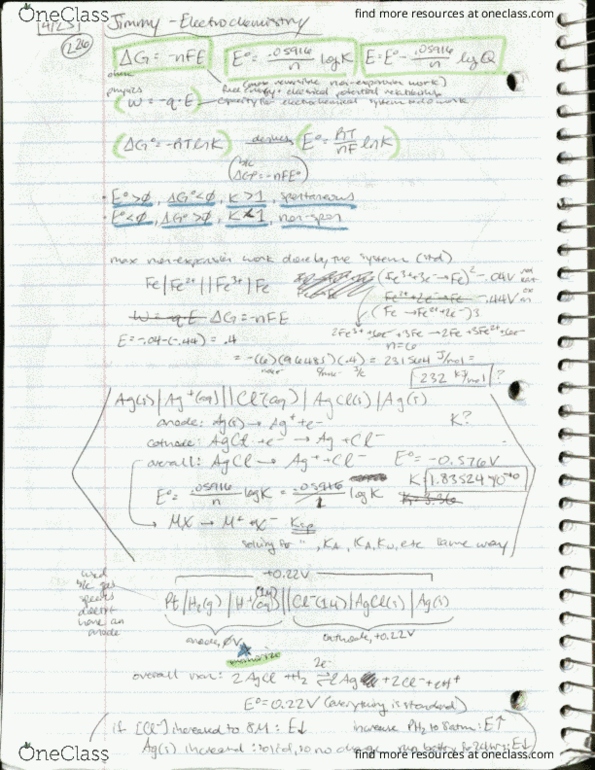 find more resources at oneclass.com
4/25
Jimmy - Electrochemistry
OneClass
226
ΔG = -nFE
E° = .05916/n log K
E = E° - .05916/n log Q
physics
(max reversible non-expansion work)
free energy + electrical potential relationship
(w = -q·E) capacity for electrochemical system to do work
(ΔG° = -RT ln K) derives (E° = RT/nF ln K)
b/c
(ΔG° = -nFE°)
· E° > 0, ΔG° < 0, K > 1, spontaneous
· E° < 0, ΔG° > 0, K < 1, non-spon
max non-expansion work done by the system (std)
Fe | Fe²⁺ || Fe³⁺ | Fe
(Fe³⁺ + 3e⁻ → Fe)2 -.04V
Fe²⁺ + 2e⁻ → Fe -.44V
(Fe → Fe²⁺ + 2e⁻)3
w = -q·E ΔG = -nFE
2Fe³⁺ + 6e⁻ + 3Fe → 2Fe + 3Fe²⁺ + 6e⁻
E = -.04 - (-.44) = .4
n = 6
= -(6)(96485)(.4) = 231564 J/mol =
232 kJ/mol ?
Ag(s) | Ag⁺(aq) || Cl⁻(aq) | AgCl(s) | Ag(s)
anode: Ag(s) → Ag⁺ + e⁻
K?
cathode: AgCl + e⁻ → Ag + Cl⁻
overall: AgCl → Ag⁺ + Cl⁻ E° = -0.576V
E° = .05916/n log K = .05916/1 log K
K = 1.83524 x 10⁻¹⁰
MX → M⁺ + X⁻ Ksp
solving for ", KA, KA, KW, etc same way
+0.22V
used b/c gas species doesn't have an anode
Pt | H₂(g) | H⁺(aq) (1M) || Cl⁻(1M) | AgCl(s) | Ag(s)
anode, 0V
cathode, +0.22V
memorize
2e⁻
overall rxn: 2AgCl + H₂ ⇌ 2Ag + 2Cl⁻ + 2H⁺
E° = 0.22V (everything is standard)
if [Cl⁻] increased to 8M: E↓
increase PH₂ to 8atm: E↑
Ag(s) increased: solid, so no change
run battery for 24hrs: E↓
OneClass
find more resources at oneclass.com